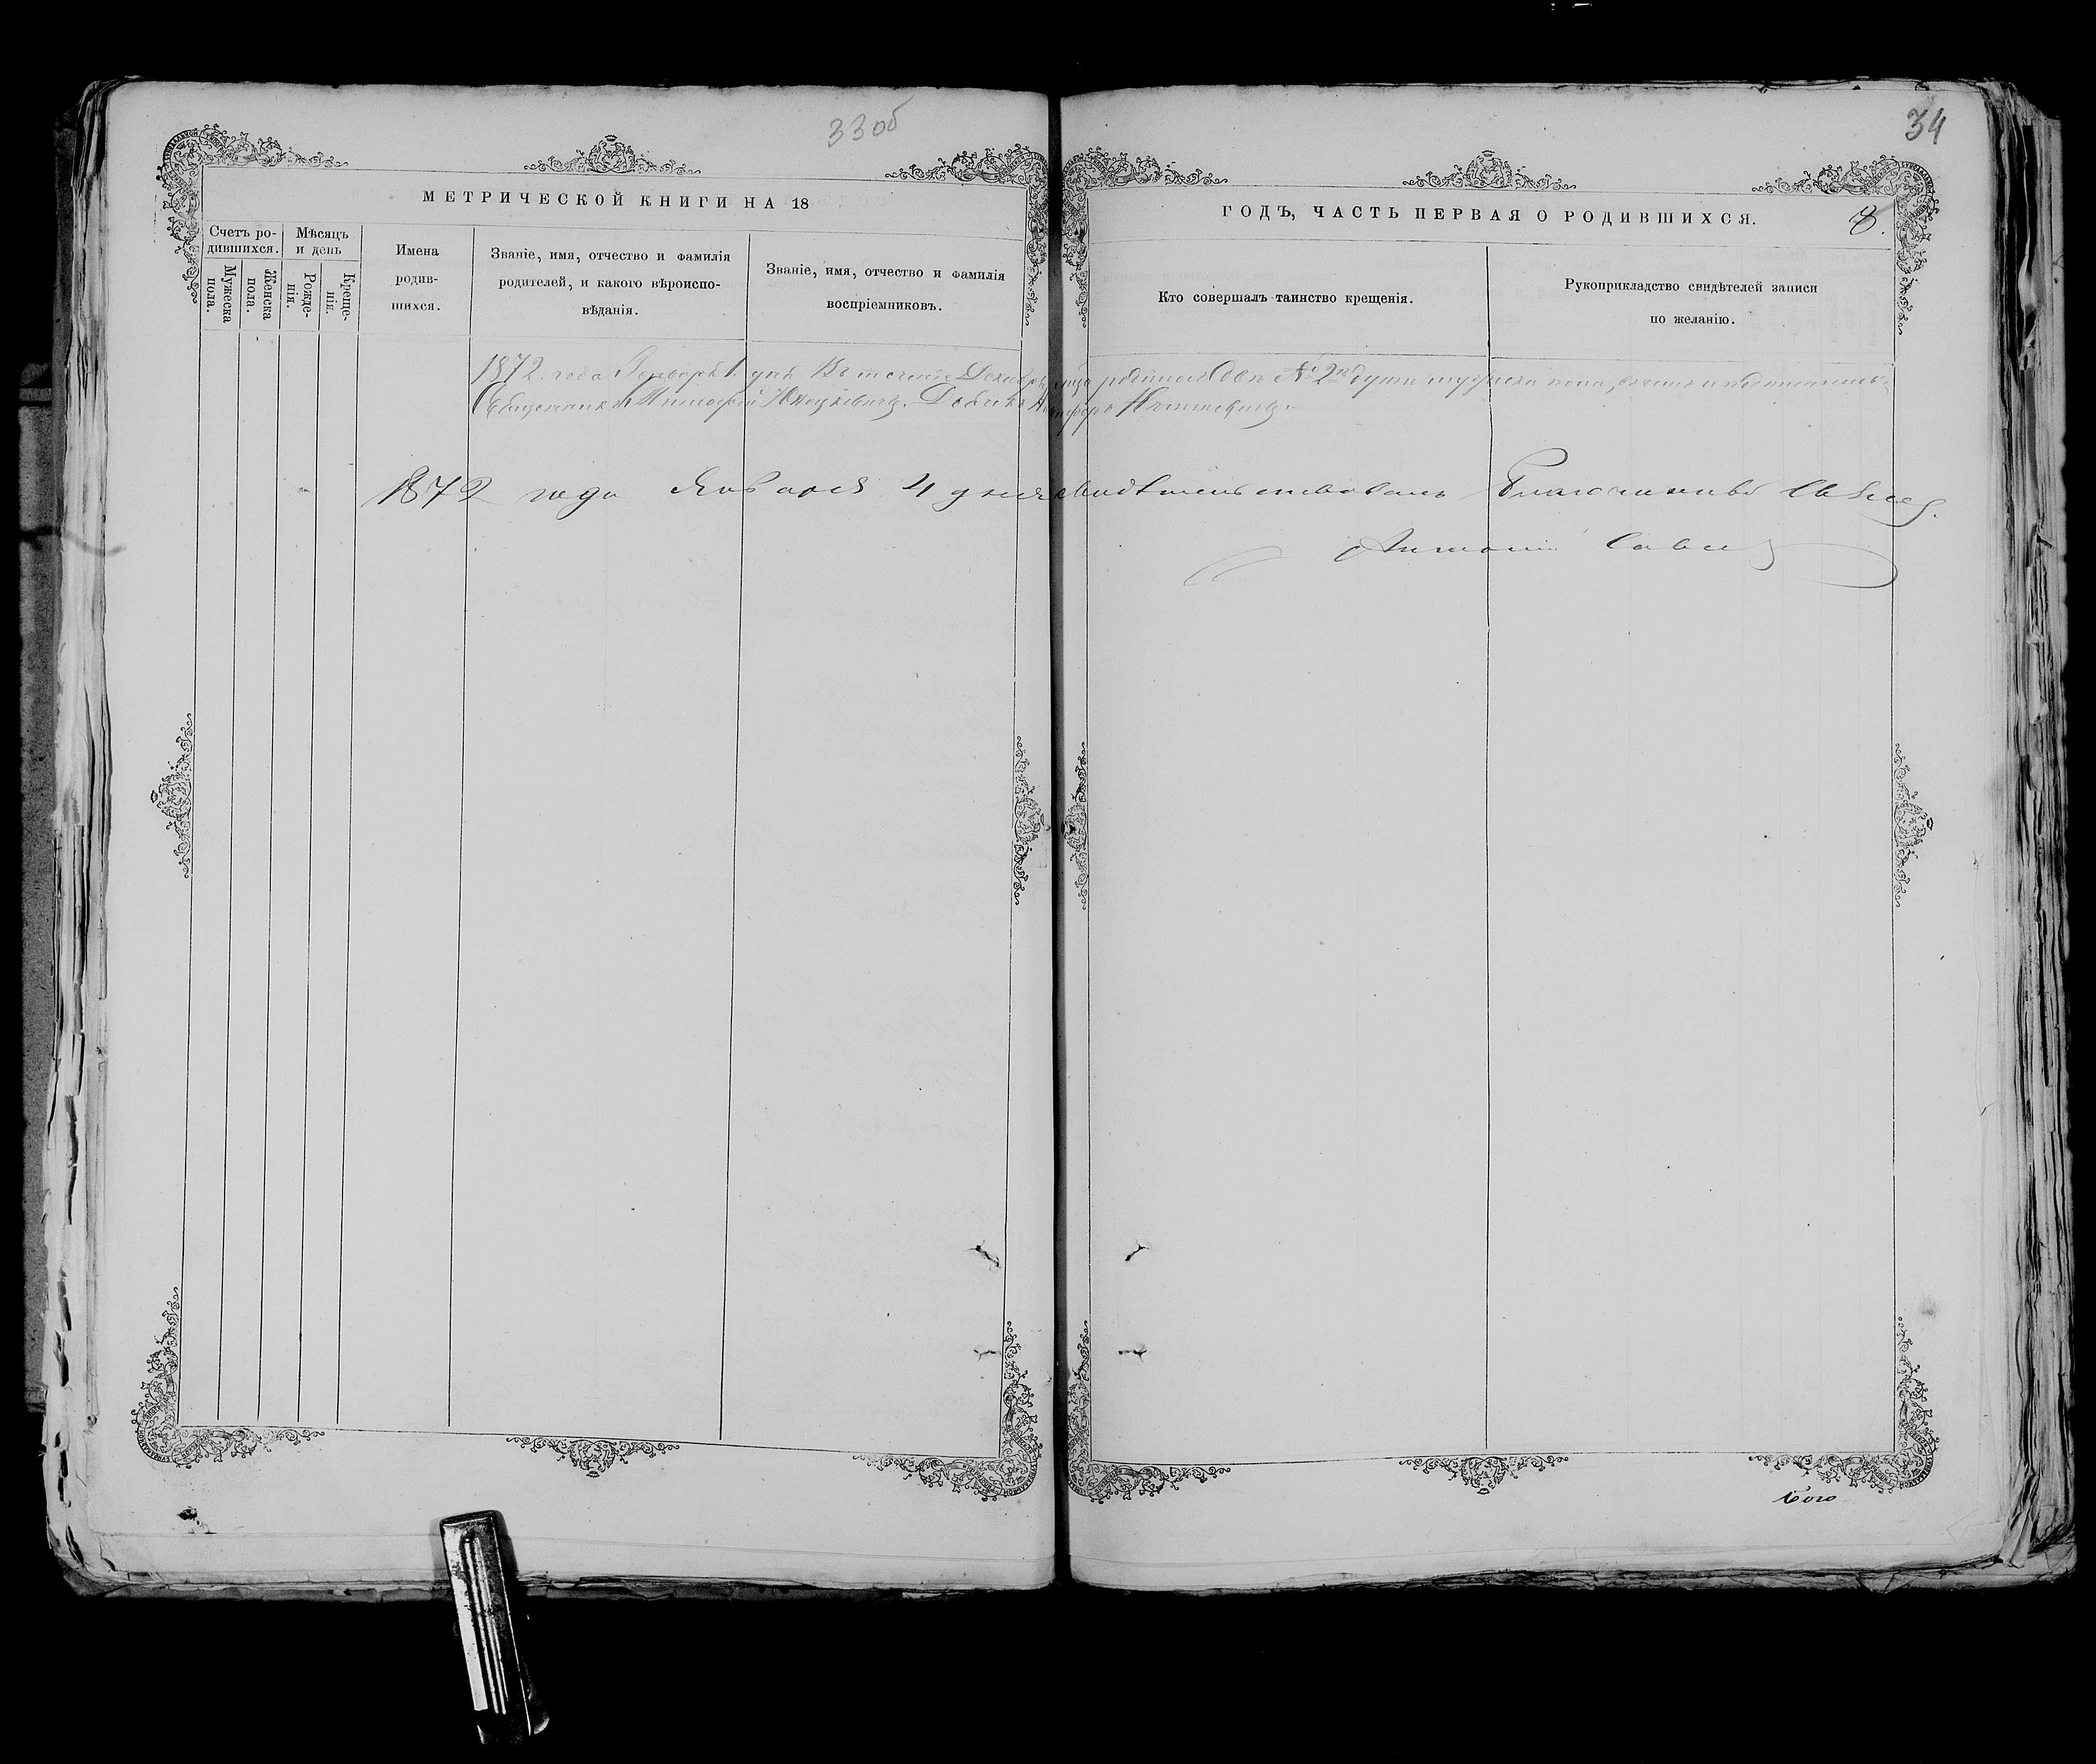 33 об
34
МЕТРИЧЕСКОЙ КНИГИ НА 18
ГОДЪ, ЧАСТЬ ПЕРВАЯ О РОДИВШИХСЯ.
8.
Счетъ ро-
дившихся.
Мужеска
пола.
Женска
пола.
Мѣсяцъ
и день
Рожде-
нія.
Креще-
нія.
Имена
родив-
шихся.
Званіе, имя, отчество и фамилія
родителей, и какого вѣроиспо-
вѣданія.
Званіе, имя, отчество и фамилія
воспріемниковъ.
Кто совершалъ таинство крещенія.
Рукоприкладство свидѣтелей записи
по желанію.
1872 года Генваря 1 дня Въ теченіе Декабря № 2 души мужеска пола
Священникъ
1872 года Января 4 дня свидѣтельствовалъ Благочинный Свящ.
Антоній